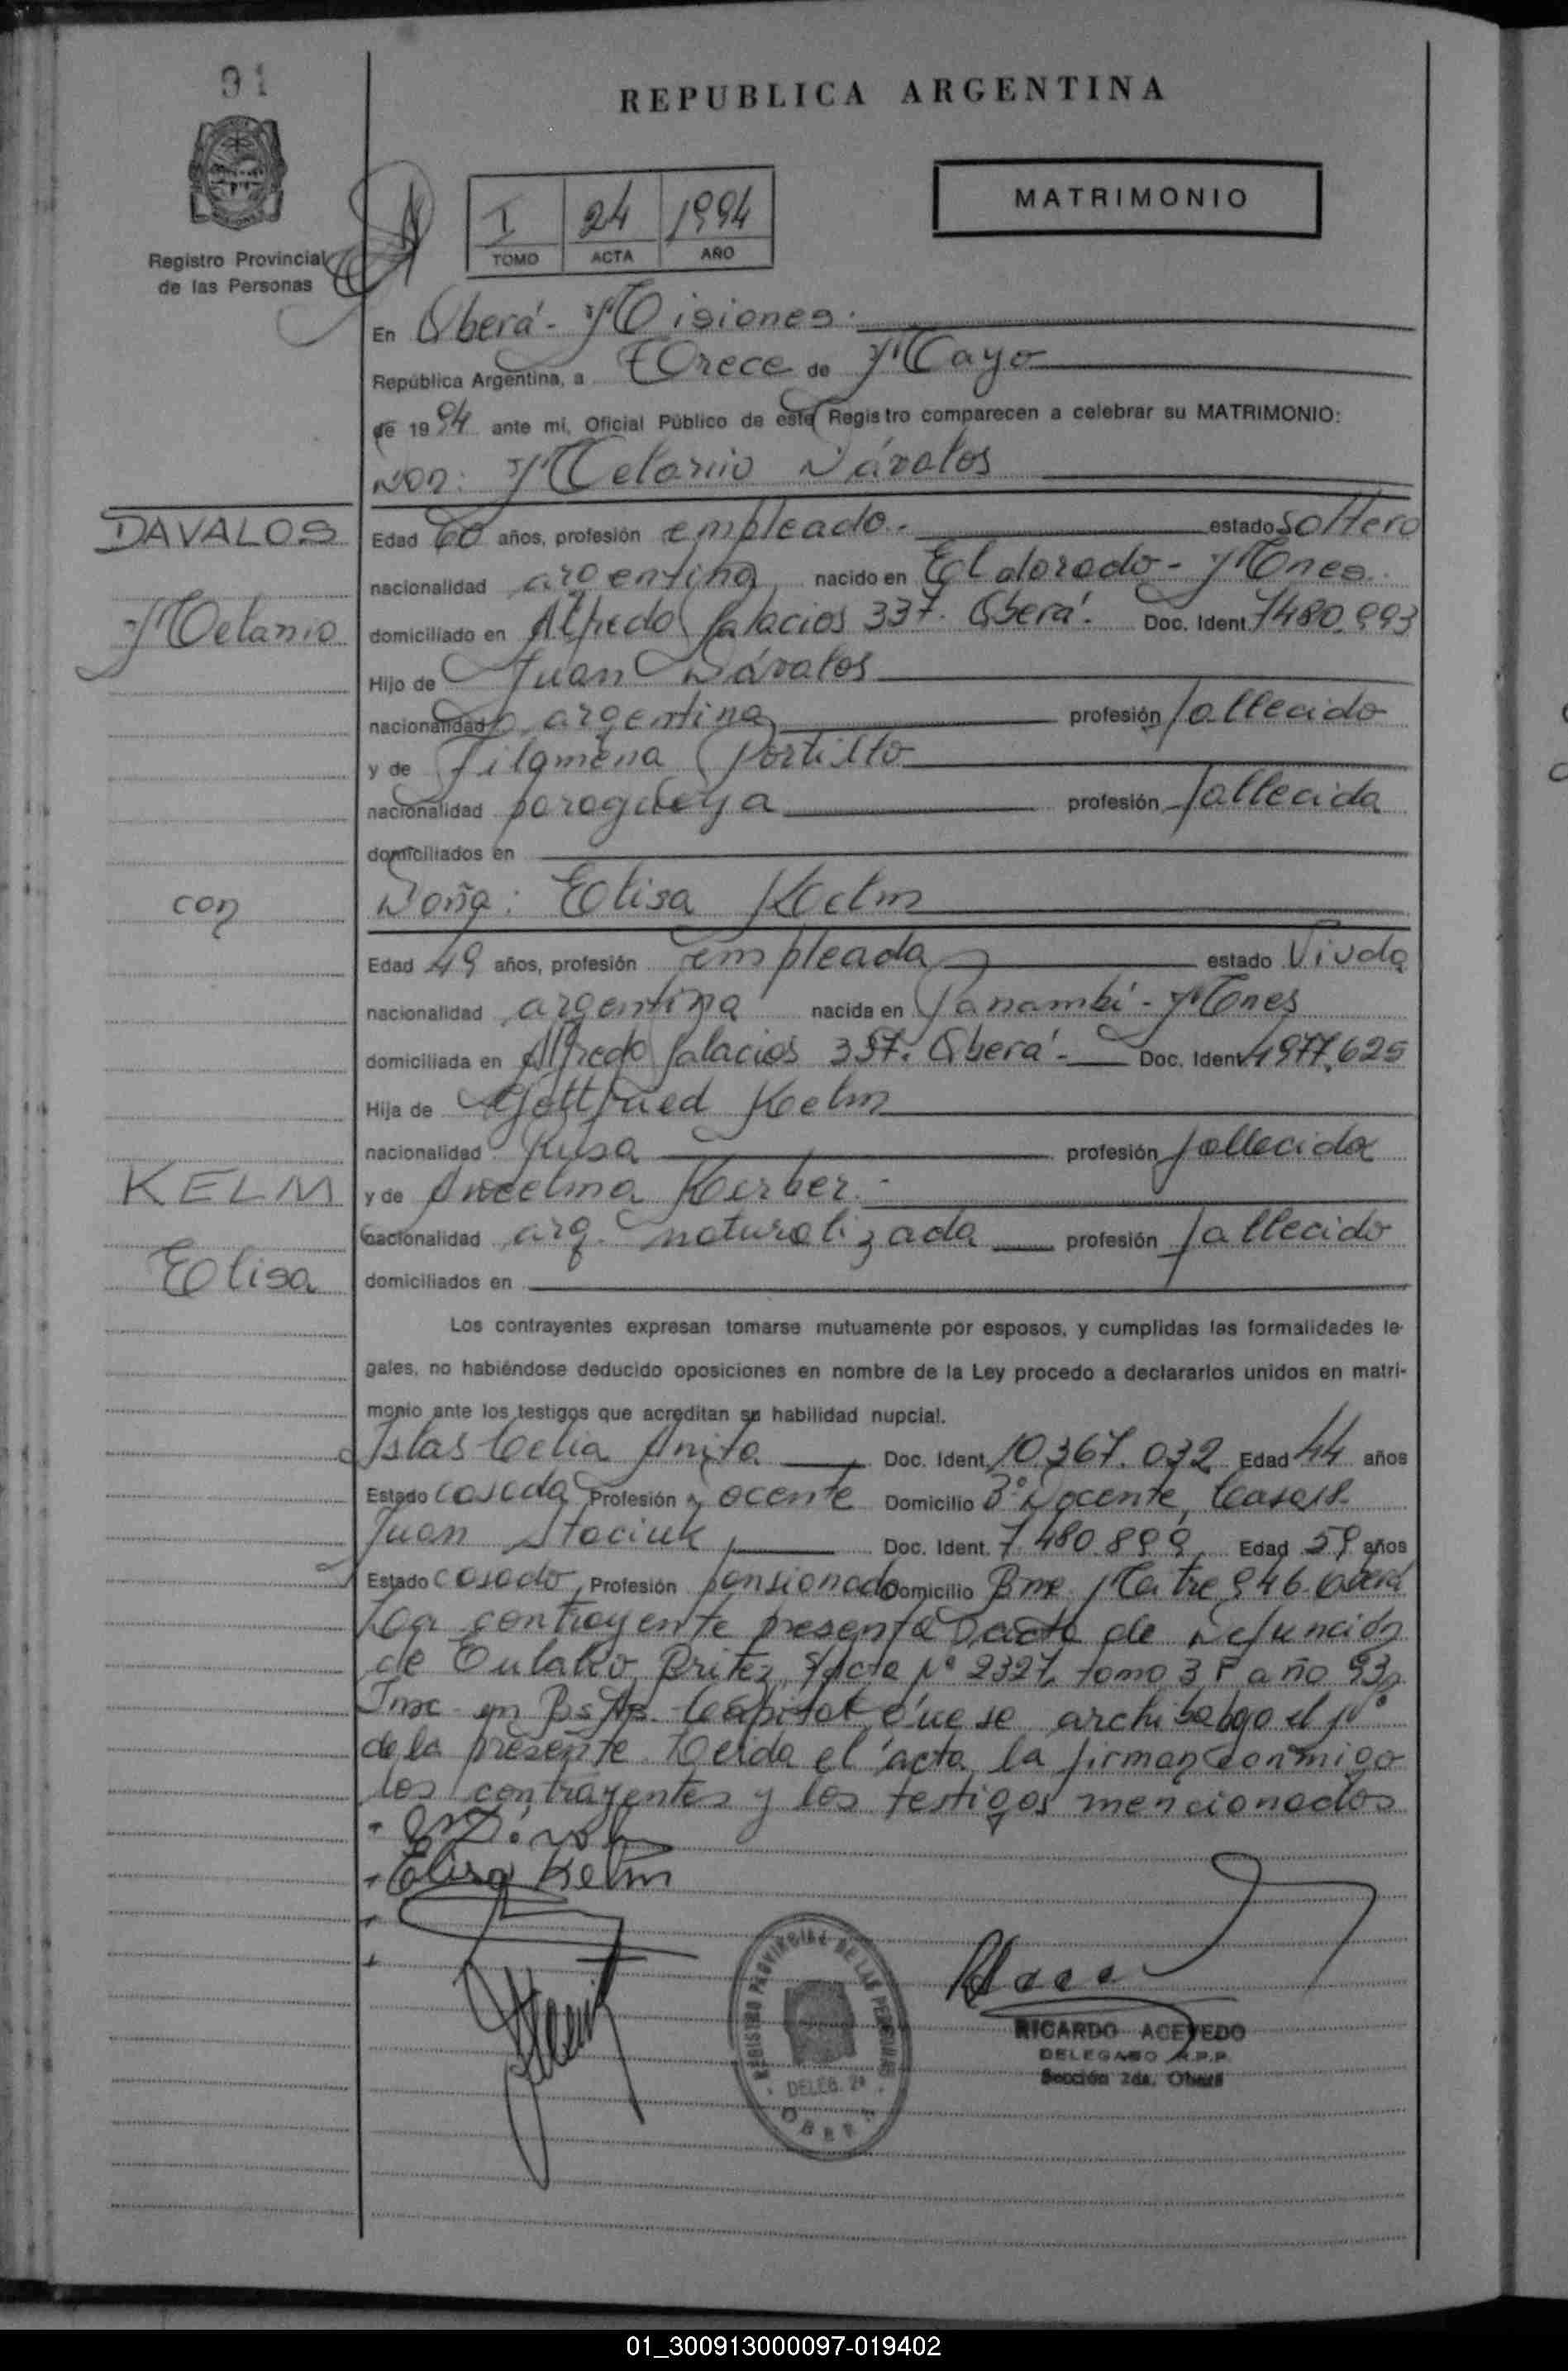 91
REPUBLICA ARGENTINA
Registro Provincial
de las Personas
I 24 1994
TOMO ACTA AÑO
MATRIMONIO
En Oberá - Misiones.
República Argentina, a Trece de Mayo
de 1994 ante mi, Oficial Público de este Registro comparecen a celebrar su MATRIMONIO:
Don: Melanio Dávalos
DAVALOS
Melanio
con
KELM
Elisa
Edad 60 años, profesión empleado.- estado soltero
nacionalidad argentina nacido en Eldorado - Mones.
domiciliado en Alfredo Palacios 337. Oberá. Doc. Ident. 7480.993
Hijo de Juan Dávalos
nacionalidad argentina profesión fallecido
y de Filomena Portillo
nacionalidad paraguaya profesión fallecida
domiciliados en
Doña: Elisa Kelm
Edad 49 años, profesión empleada estado Viuda
nacionalidad argentina nacida en Panambí - Mones
domiciliada en Alfredo Palacios 337. Oberá - Doc. Ident. 4977.625
Hija de Gottfried Kelm
nacionalidad Rusa profesión fallecido
y de Kerber.-
nacionalidad arg. naturalizada profesión fallecido
domiciliados en
Los contrayentes expresan tomarse mutuamente por esposos, y cumplidas las formalidades le-
gales, no habiéndose deducido oposiciones en nombre de la Ley procedo a declararlos unidos en matri-
monio ante los testigos que acreditan su habilidad nupcial.
Islas Celia Anita Doc. Ident. 10.367.032 Edad 44 años
Estado casada Profesión Docente Domicilio Bº Docente, Casa 18.
Juan Staciuk Doc. Ident. 7.480.899 Edad 59 años
Estado casado, Profesión pensionado Domicilio Bme. Mitre 946. Oberá
La contrayente presenta acta de Defunción
de Eulalio Britez, Acta Nº 2327, tomo 3 F año 93,
Insc. en Bs As. Capital que se archiba bajo el Nº
de la presente. Leida el acta, la firman conmigo
los contrayentes y los testigos mencionados
Elisa Kelm
REGISTRO PROVINCIAL DE LAS PERSONAS
DELEG. 2ª
OBERA
RICARDO ACEVEDO
DELEGADO R.P.P.
Sección 2da. Oberá
01_300913000097-019402